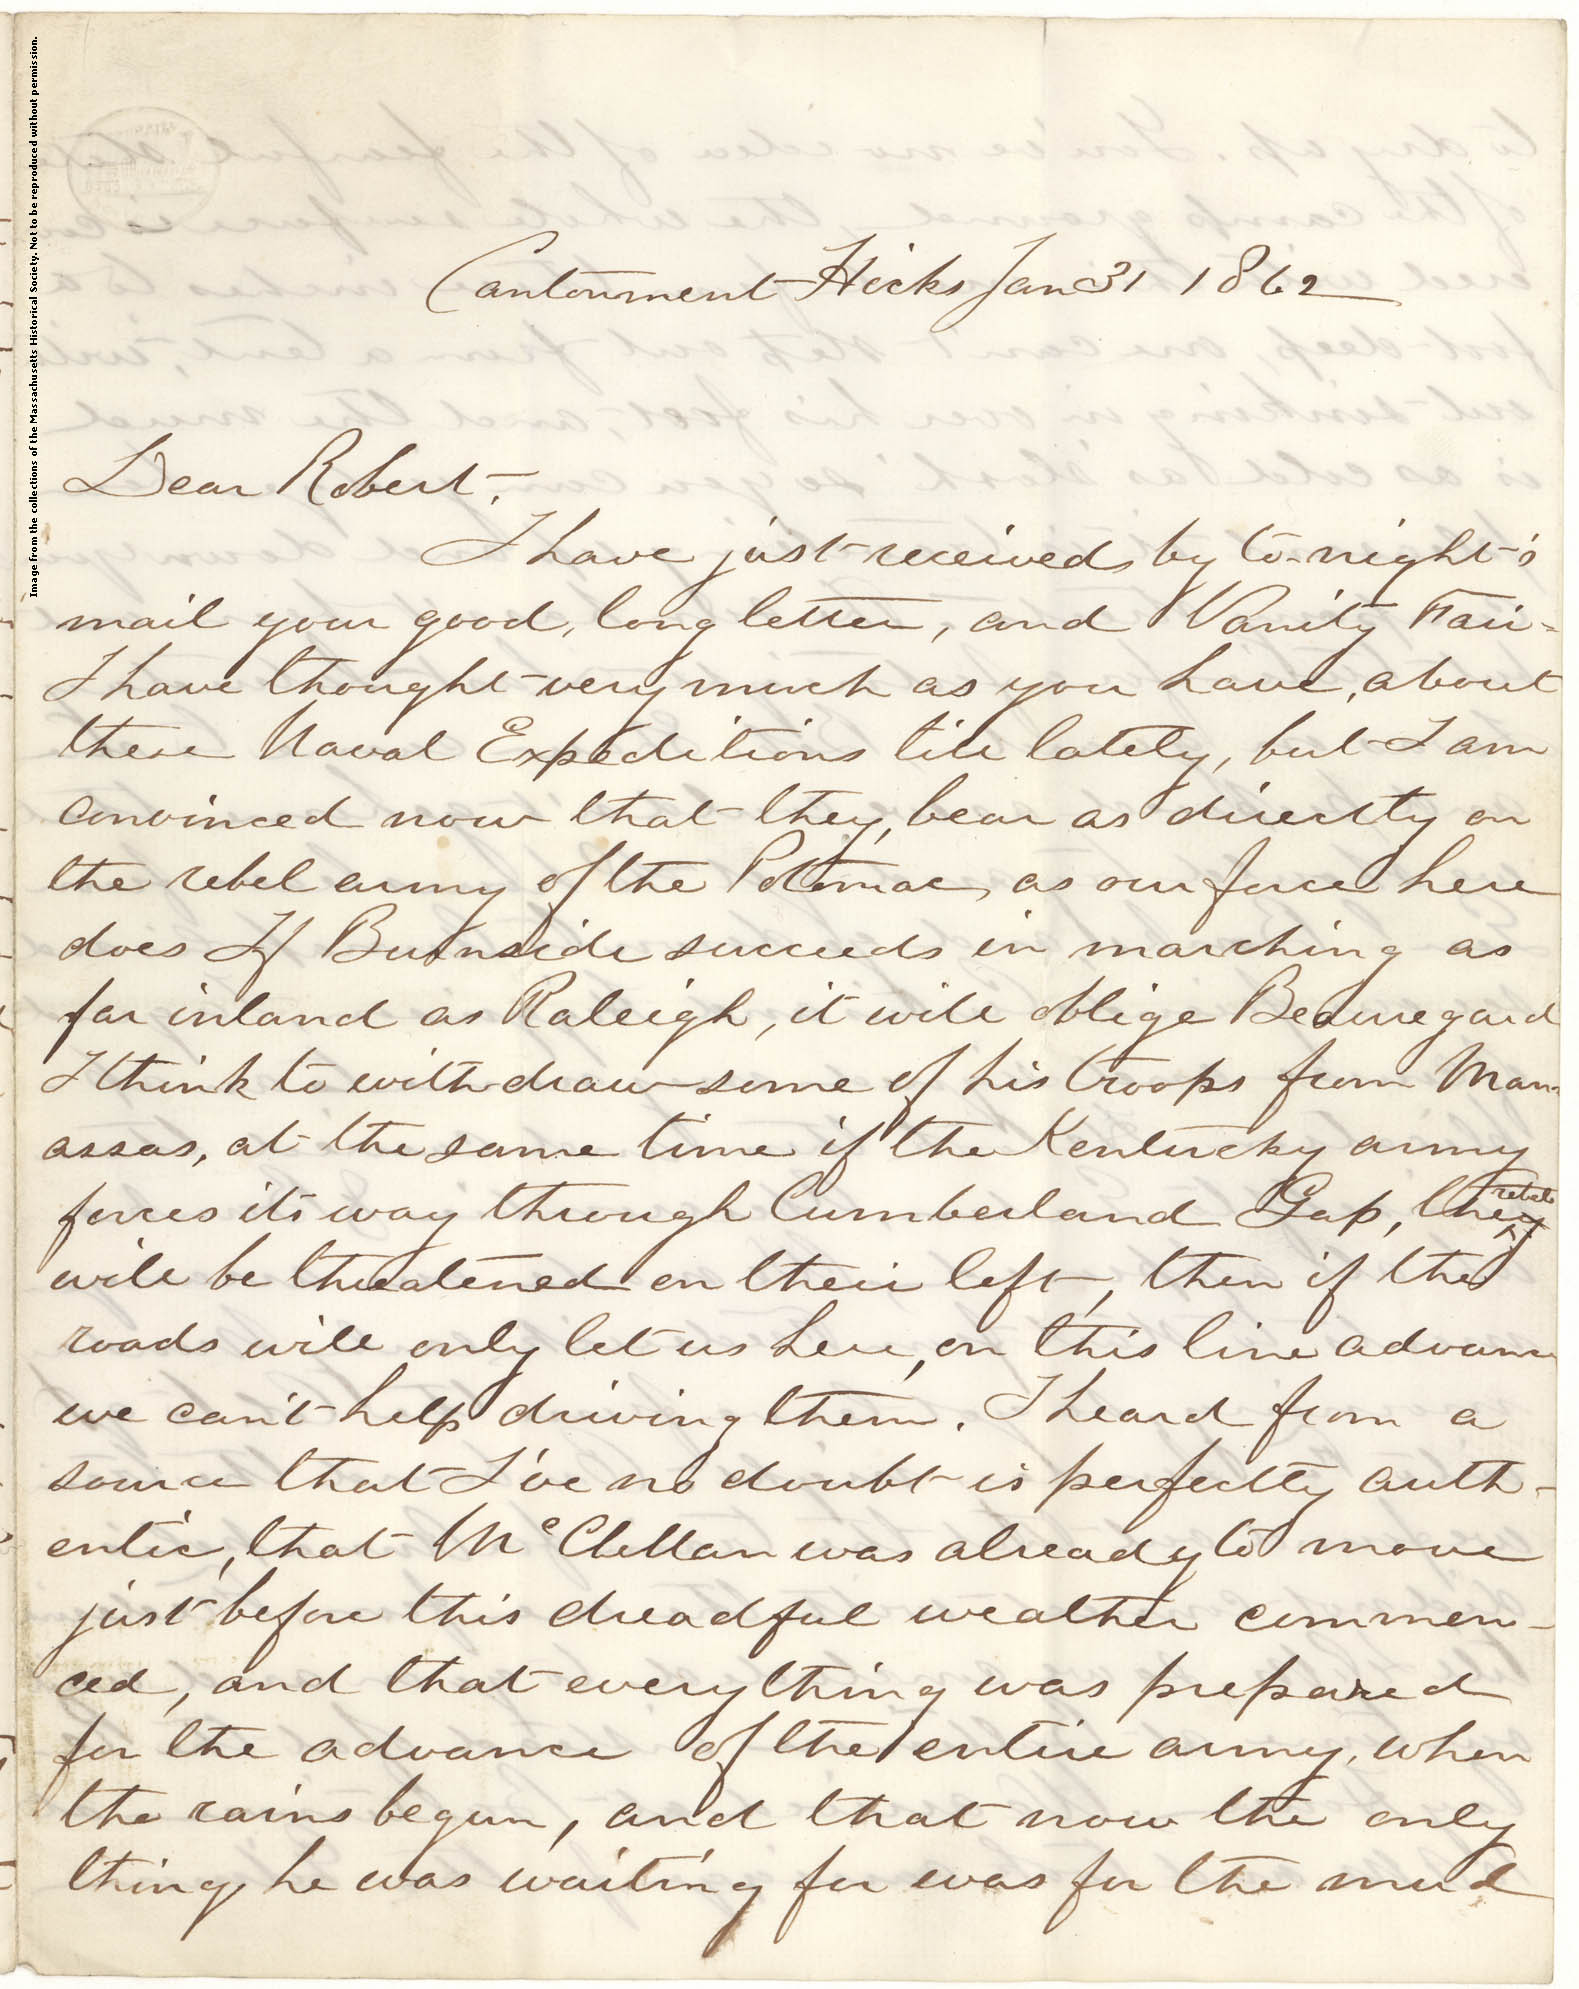 Image from the collections of the Massachusetts Historical Society. Not to be reproduced without permission.
Cantonment Hicks Jan 31 1862
Dear Robert,
I have just received by to-night's
mail your good, long letter, and Vanity Fair-
I have thought very much as you have, about
these Naval Expeditions till lately, but I am
convinced now that they bear as directly on
the rebel army of the Potomac, as our force here
does If Burnside succeeds in marching as
far inland as Raleigh, it will oblige Beauregard
I think to withdraw some of his troops from Man-
assas, at the same time if the Kentucky army
forces its way through Cumberland Gap, the rebels
will be threatened on their left, then if the
roads will only let us here, on this line advance
we can't help driving them. I heard from a
source that I've no doubt is perfectly auth-
entic, that McClellan was already to move
just before this dreadful weather commen-
ced, and that everything was prepared
for the advance of the entire army, when
the rains begun, and that now the only
thing he was waiting for was for the mud